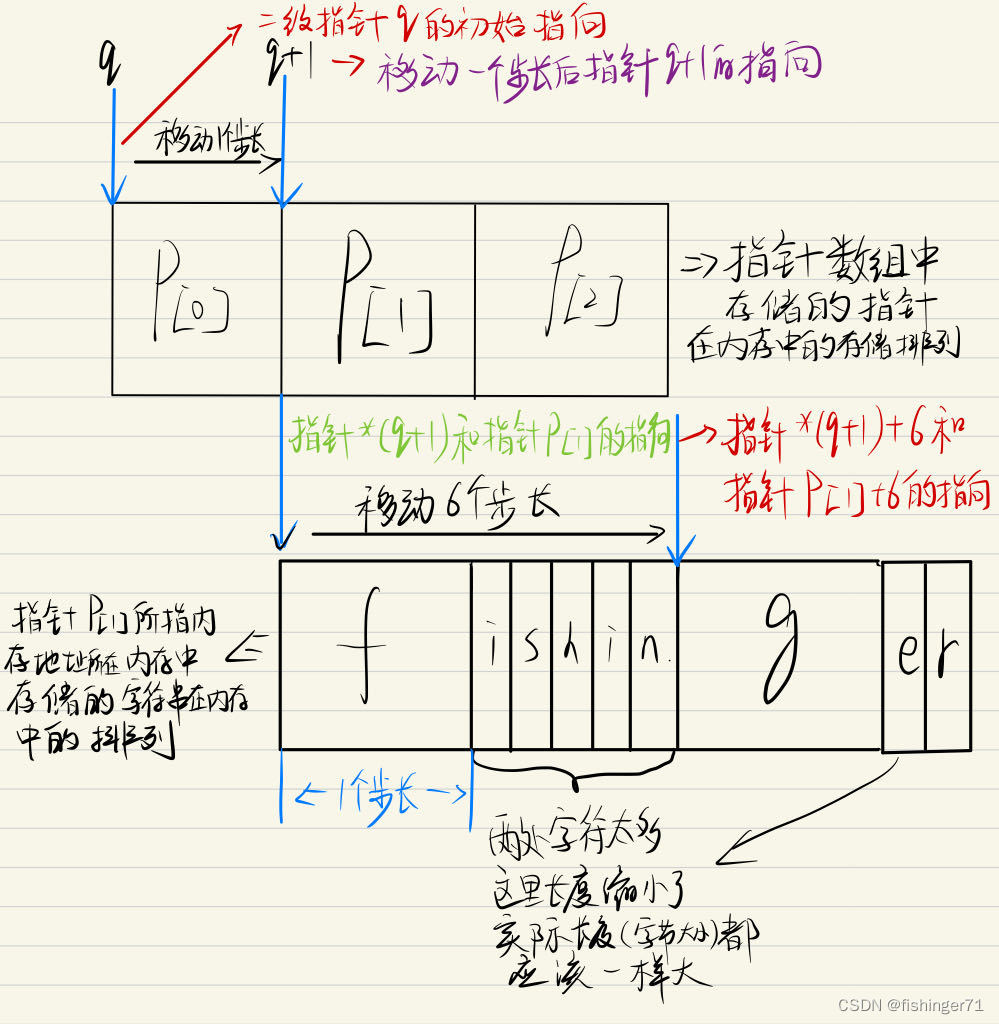 二级指针q的初始指向
q
q+1
移动一个步长后指针q+1的指向
移动1个步长
P[0]
P[1]
P[2]
=> 指针数组中
存储的指针
在内存中的存储排列
指针*(q+1)和指针P[1]的指向
指针*(q+1)+6和
指针P[1]+6的指向
移动6个步长
f
i
s
h
i
n
g
e
r
指针P[1]所指内
存地址所在内存中
存储的字符串在内存
中的排列
1个步长
两处字符太多
这里长度缩小了
实际长度(字节大小)都
应该一样大
CSDN @fishinger71